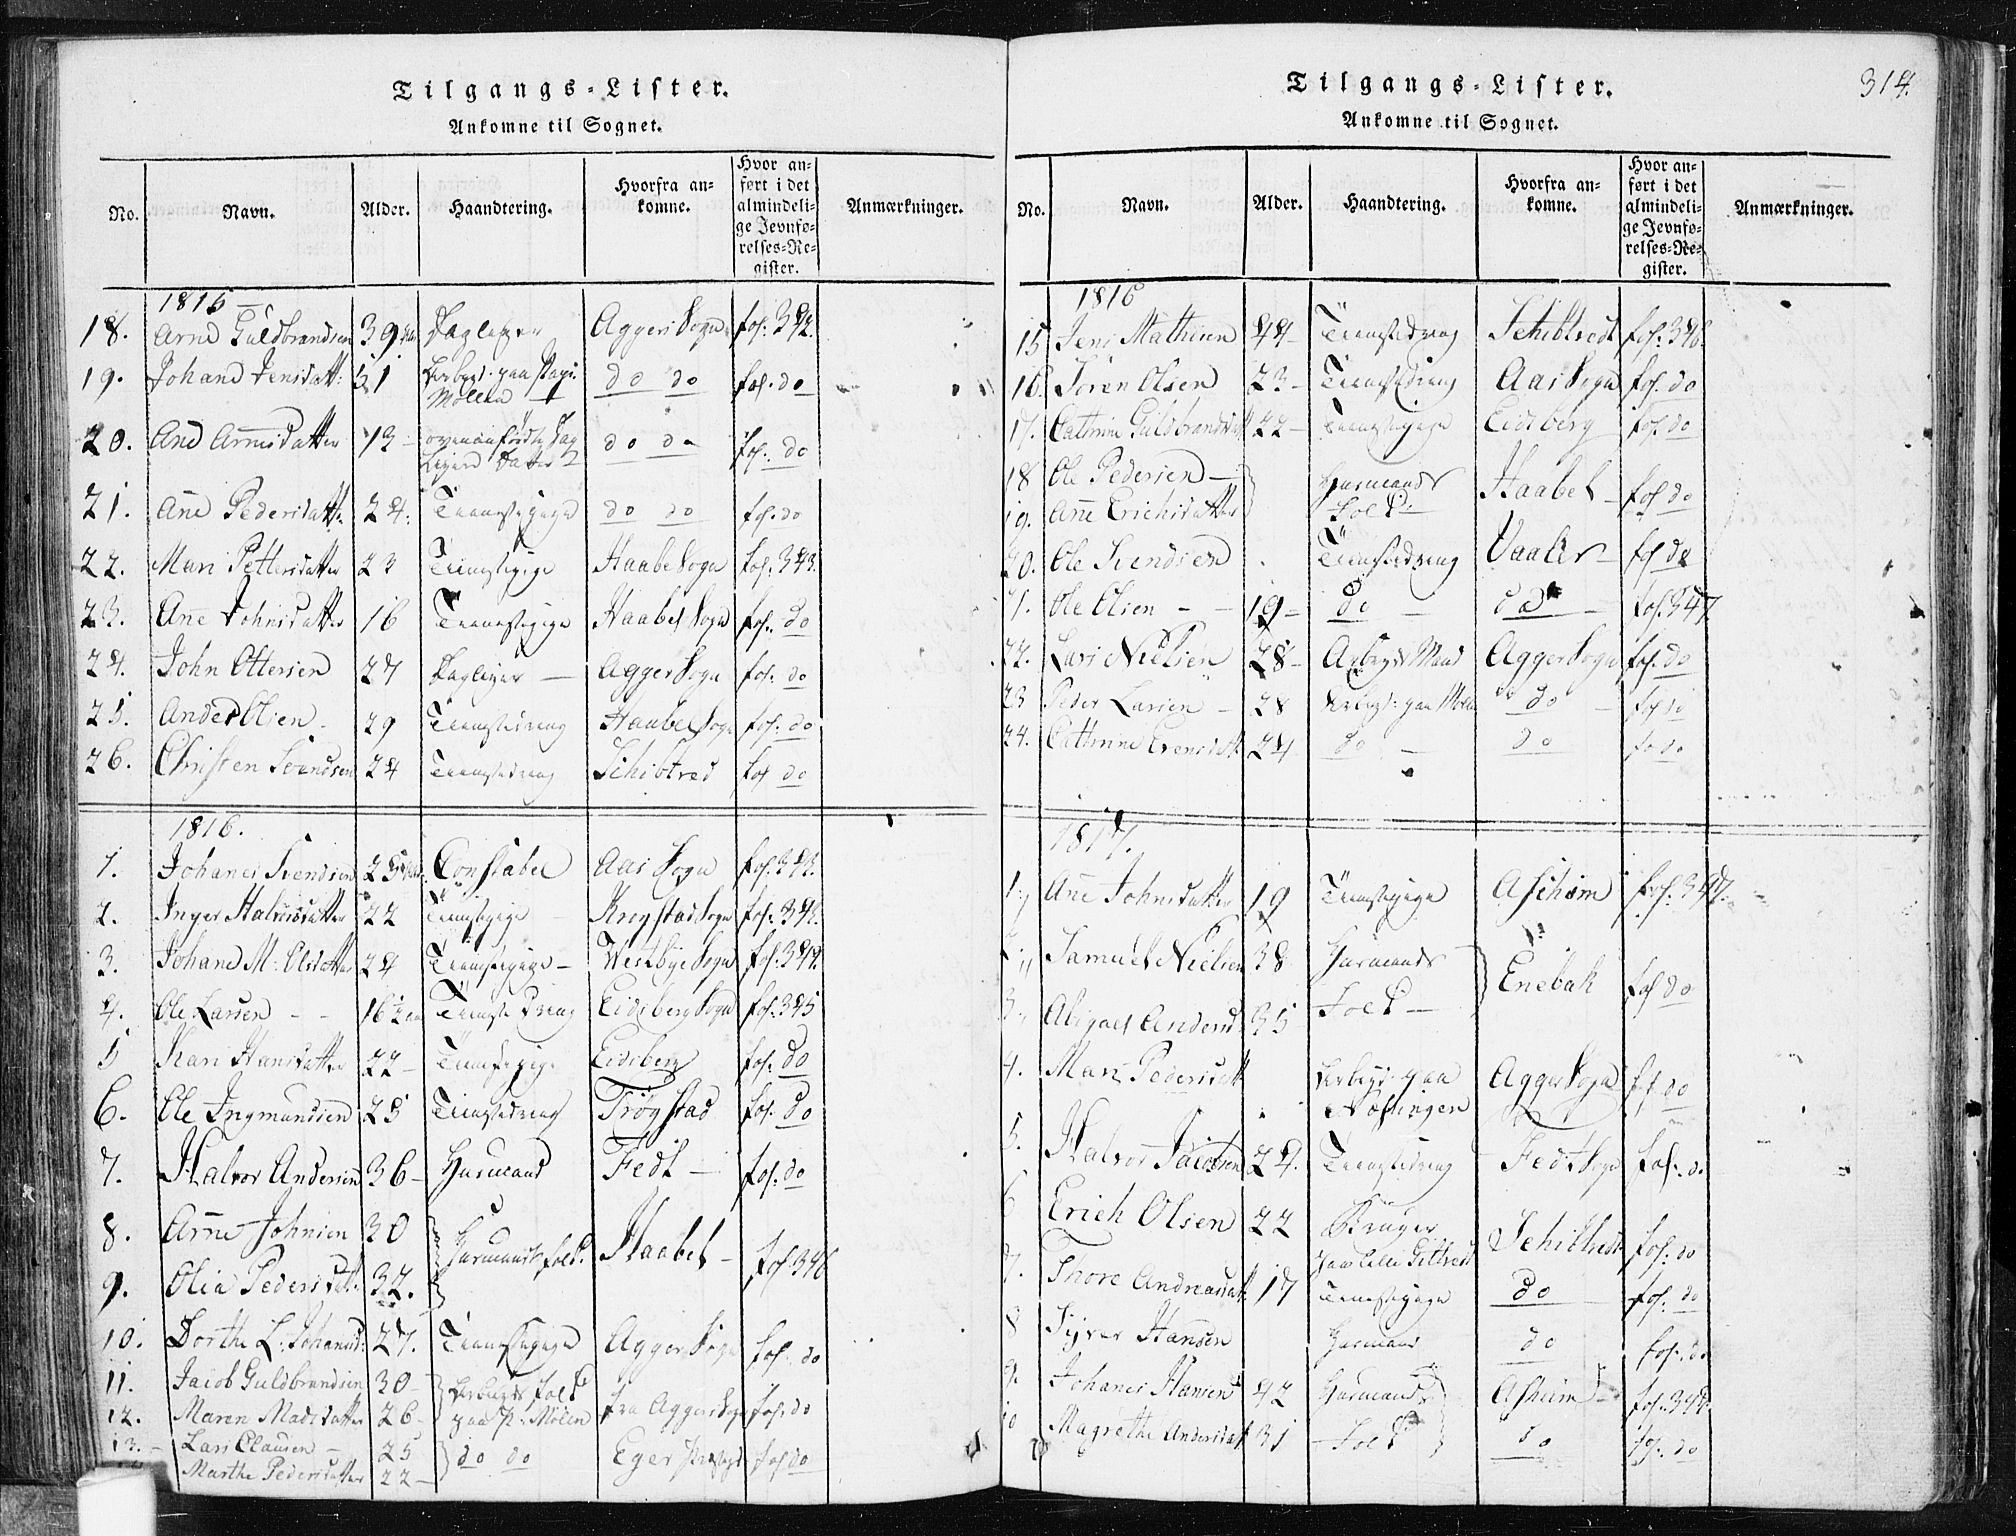 Tilgangs-Lister.
Ankomne til Sognet.
No. Navn. Alder. Haandtering. Hvorfra ankomne. Hvor anført i det almindelige Jevnførelses-Register. Anmærkninger.
1815
18. Arne Guldbrandsen 39 Dagleyer Aggers Sogn fol: 342.
19. Johane Jensdatt: 51 do do fol. do
Møllen
20. Ane Arnesdatter 13 do do fol. do
21. Ane Pedersdatter 24. Tienestepige do do fol. do
22. Mari Pettersdatter 23 Tienstepige Haabel Sogn fol. 343.
23. Ane Johnsdatter 16 Tienestepige Haabel Sogn fol. do
24. John Ottersen 27 Dagleyer Agger Sogn fol. do
25. Anders Olsen 29 Tienestedreng Haabel Sogn fol. do
26. Christen Svendsen 24 Tienestedreng Schibtved fol do
1816.
1. Johanes Svendsen 25 Constabel Aas Sogn fol. 343.
2. Inger Halvorsdatter 22 Tienstepige Krogstad Sogn fol. 343.
3. Johane M: Olsdatter 24 Tienstepige Westbye Sogn fol. 344.
4. Ole Larsen 16½ Tieneste Dreng Eidsberg Sogn fol. 345
5 Kari Hansdatter 22 Tienstepige Eidsberg fol. do
6. Ole Ingmundsen 25 Tienstedreng Trøgstad fol. do
7. Halvor Andersen 36 Huusmand Fedt fol. do
8. Arne Johnsen 30 Huusmandsfolk Haabel fol 346
9. Olia Pedersdatt: 32.
10. Dorthe L: Johansd: 27. Tienestepige Agger Sogn fol. do
11. Jacob Guldbrandsen 30 Arbeids folk fra Aggers Sogn fol. do
12. Maren Madsdatter 26 paa P: Mølen
13. Lars Clausen 25 do do Eger fol do
Marthe Pedersdatter 22
Tilgangs-Lister. 314.
Ankomne til Sognet.
No. Navn. Alder. Haandtering. Hvorfra ankomne. Hvor anført i det almindelige Jevnførelses-Register. Anmærkninger.
1816
15 Jens Mathisen 44 Tienestedreng Schibtvedt fol. 346.
16. Søren Olsen 23 Tienestedreng Aas Sogn fol. do
17. Cathrine Guldbrandsdatt 22 Tienestepige Eidsberg fol. do
18 Ole Pedersen Huusmands Haabel fol do
19. Ane Erichsdatter Folk
20. Ole Svendsen Tienestedreng Vaaler fol do
21. Ole Olsen 19 do do fol. 347
22. Lars Nielsen 28 Arbeids Mand Agger Sogn fol. do
23 Peder Larsen 28 Arbeid: paa Mølen do fol do
24. Cathrine 24 do do fo do
1817.
1. Ane Johnsdatter 19 Tienestepige Aschim fol. 347.
Samuel Nielsen 38 Huusmands Enebak fol do
3. Abigael Andersd 35 Folk
4. Mari Pedersdatt Arbeid: paa Agger Sogn fol do
5. Halvor Jacobsen 24. Tienestedreng Fedt Sogn fol. do
6 Erich Olsen 22 Schibtvedt fol. do
7. Thore Andreasdatt 17 Tienestepige do fol. do
8 Syver Hansen Huusmand do fol. do
9. Johanes Hansen 42 Huusmands Ashium fol. 348.
10 Magrethe Andersdatt 31 Folk do fol. do